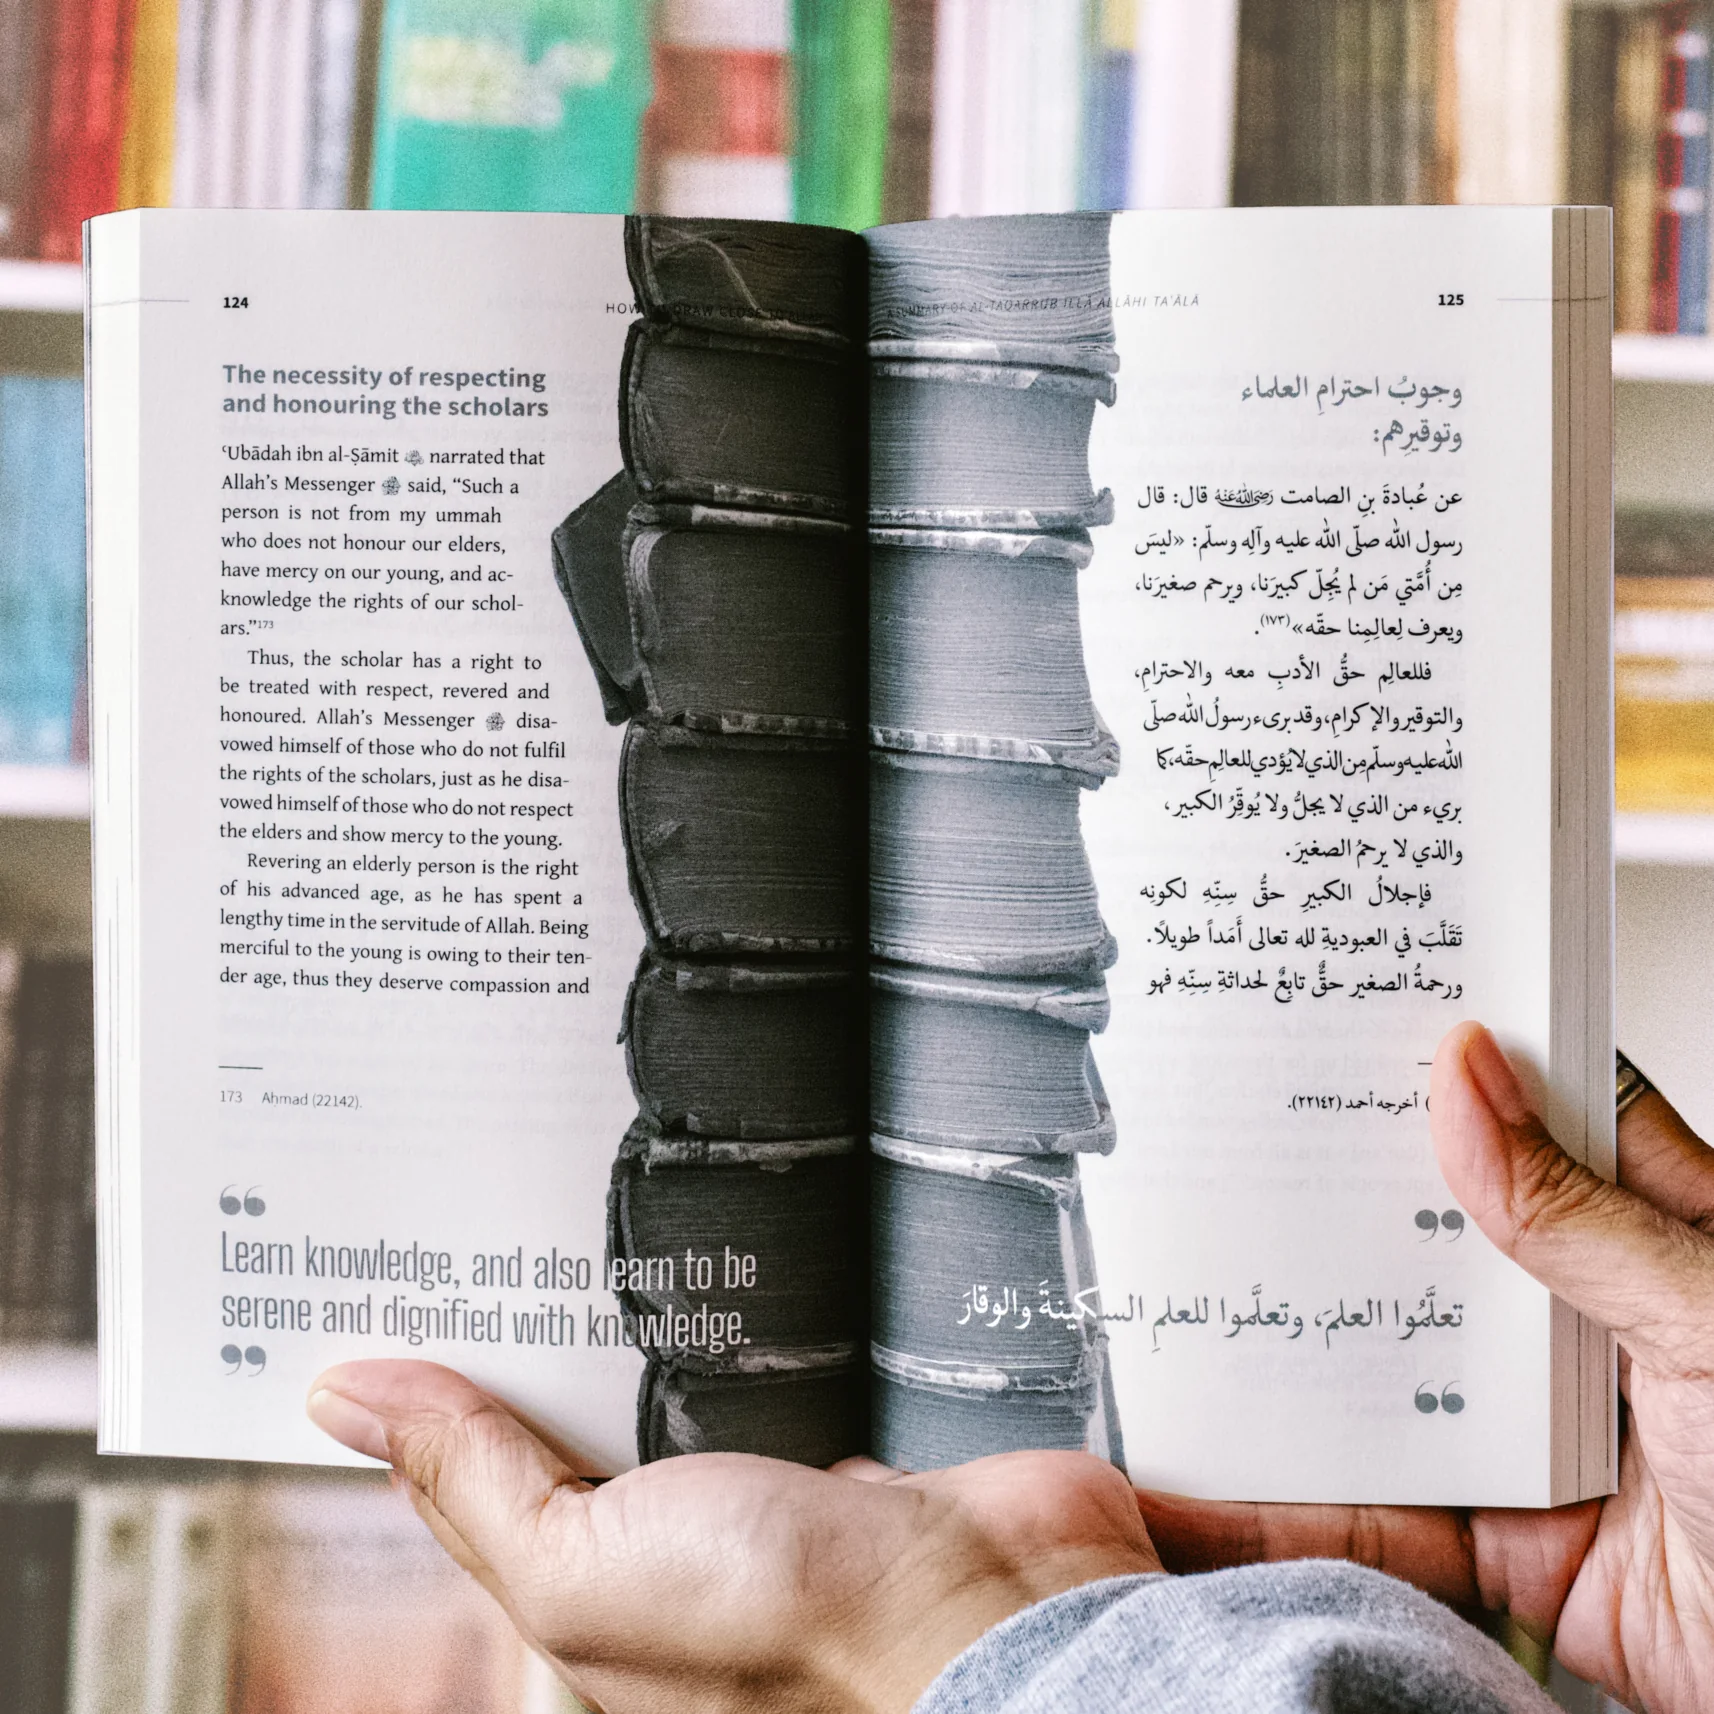 124
HOW TO DRAW CLOSE TO ALLAH
The necessity of respecting
and honouring the scholars
ʿUbādah ibn al-Ṣāmit narrated that
Allah’s Messenger ﷺ said, “Such a
person is not from my ummah
who does not honour our elders,
have mercy on our young, and ac-
knowledge the rights of our schol-
ars.”173
Thus, the scholar has a right to
be treated with respect, revered and
honoured. Allah’s Messenger ﷺ disa-
vowed himself of those who do not fulfil
the rights of the scholars, just as he disa-
vowed himself of those who do not respect
the elders and show mercy to the young.
Revering an elderly person is the right
of his advanced age, as he has spent a
lengthy time in the servitude of Allah. Being
merciful to the young is owing to their ten-
der age, thus they deserve compassion and
173 Aḥmad (22142).
“
Learn knowledge, and also learn to be
serene and dignified with knowledge.
”
A SUMMARY OF AL-TAQARRUB ILLĀ ALLĀHI TAʿĀLĀ
125
وجوبُ احترامِ العلماء
وتوقيرِهم:
عن عُبادةَ بنِ الصامت رَضِيَ اللهُ عَنْهُ قال: قال
رسول الله صلّى الله عليه وآلِه وسلّم: «ليسَ
مِن أُمَّتي مَن لم يُجِلّ كبيرَنا، ويرحم صغيرَنا،
ويعرف لِعالِمِنا حقّه»(١٧٣).
فللعالِم حقُّ الأدبِ معه والاحترامِ،
والتوقير والإكرامِ، وقد برىء رسولُ الله صلّى
الله عليه وسلّم مِن الذي لا يُؤدي للعالِمِ حقّه، كما
بريء من الذي لا يجلُّ ولا يُوقِّرُ الكبير،
والذي لا يرحمُ الصغيرَ.
فإجلالُ الكبيرِ حقُّ سِنِّهِ لكونِه
تَقَلَّبَ في العبوديةِ لله تعالى أَمَداً طويلاً.
ورحمةُ الصغير حقٌّ تابعٌ لحداثةِ سِنِّهِ فهو
) أخرجه أحمد (٢٢١٤٢).
”
تعلَّمُوا العلمَ، وتعلَّموا للعلمِ السكينةَ والوقارَ
“